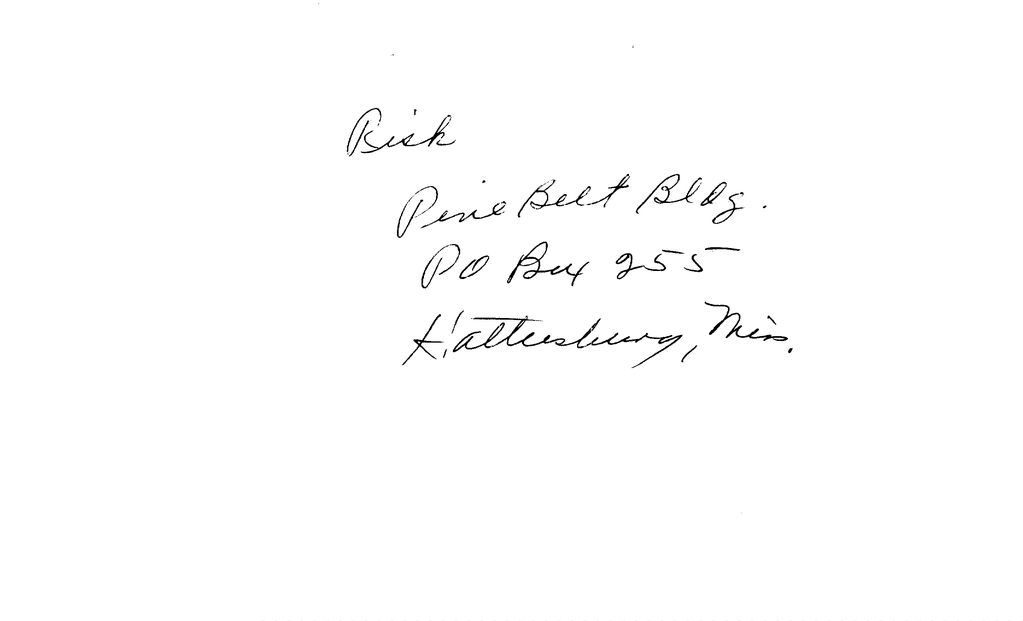 Risk
Pine Belt Bldg.
PO Box 255
Hattiesburg, Miss.